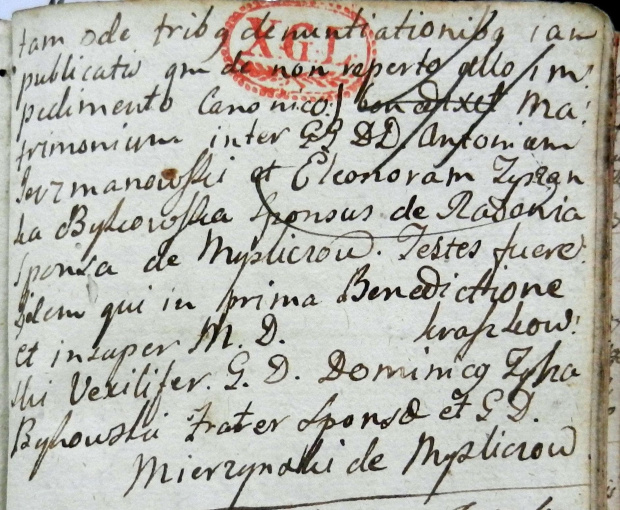 tam ode tribq denuntiationibq iam
XGL
publicatis qm de non reperto ullo im:
pedimento Canonico!
Ma:
trimonium inter GG DD. Antonium
Jerzmanowski et Eleonoram
Bykowska Sponsus de Radonia
Sponsa de Myslierow. Testes fuere:
iidem qui in prima Benedictione
et insuper M. D. Kraszkow:
ski Vexilifer. G. D. Dominicq
Bykowski Frater Sponsæ et G D
Mierzynski de Myslierow